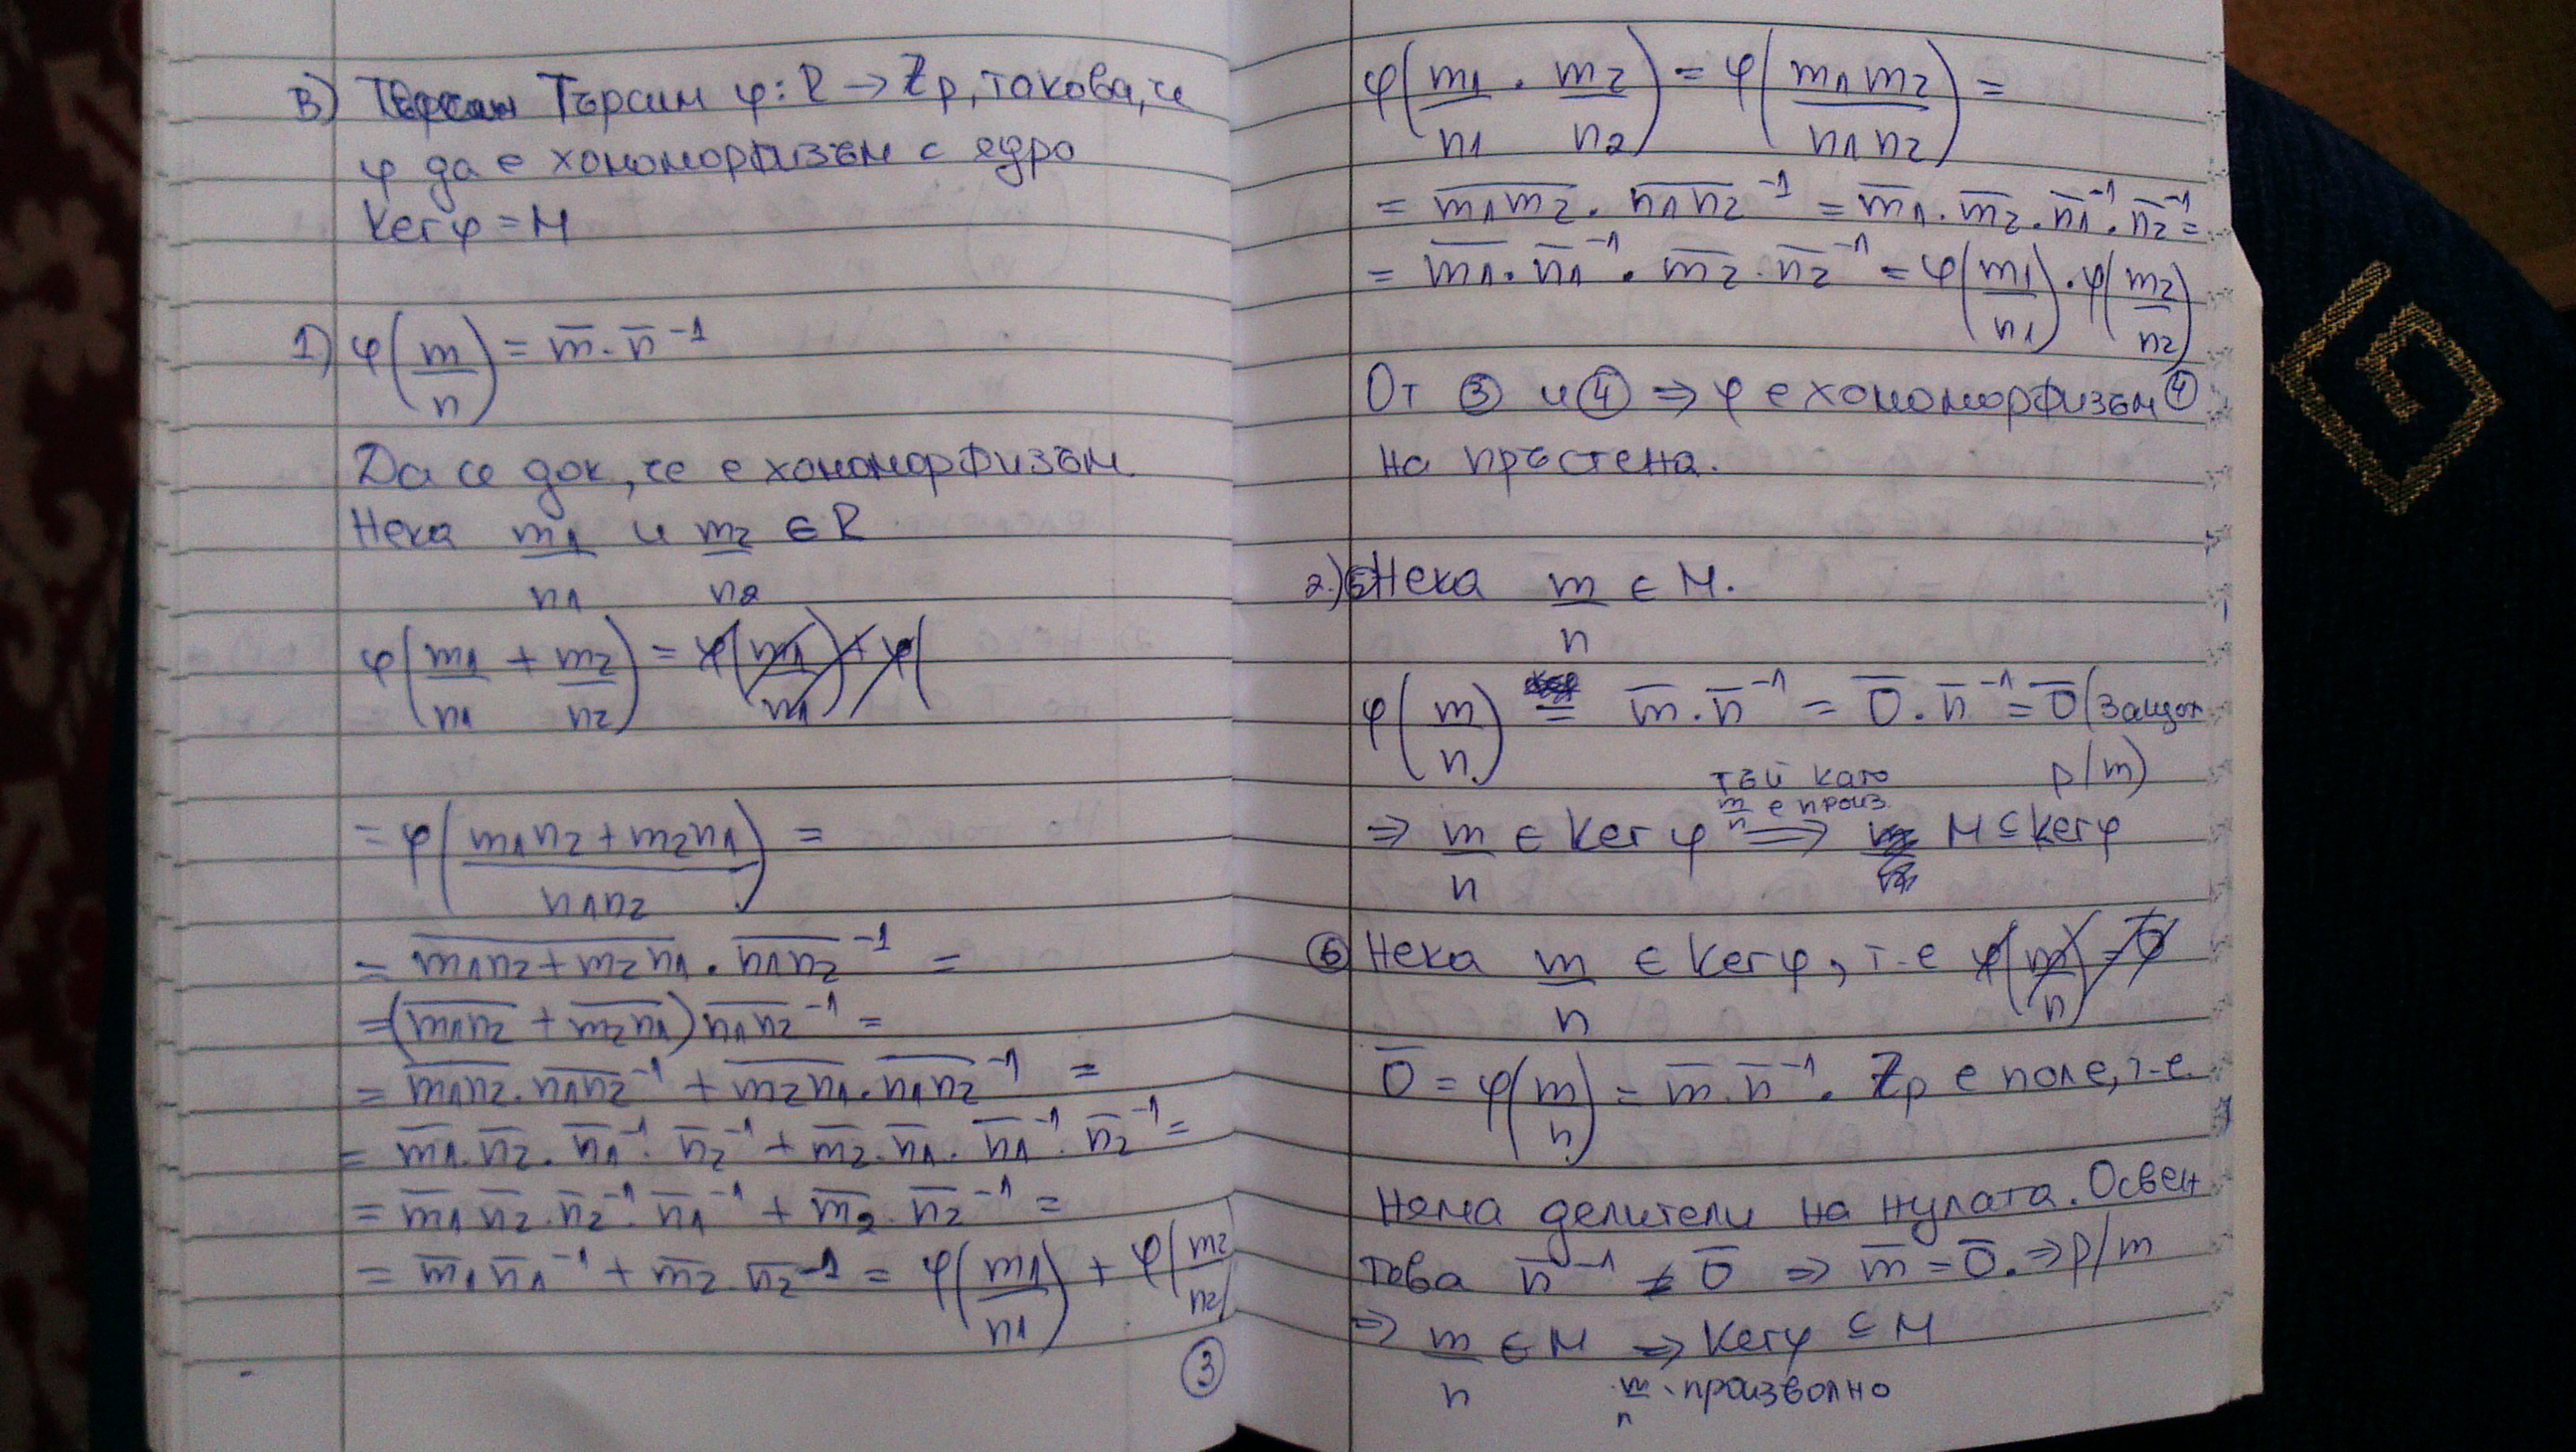 в) Търсим φ: R → Zp, такова, че
φ да е хомоморфизъм с ядро
Ker φ = M
1) φ(m/n) = m̅ . n̅⁻¹
Да се док, че е хомоморфизъм.
Нека m1/n1 и m2/n2 ∈ R
φ(m1/n1 + m2/n2) = φ(m1/n1) + φ(
= φ((m1n2 + m2n1)/(n1n2)) =
= \overline{m1n2 + m2n1} . \overline{n1n2}⁻¹ =
= (\overline{m1n2} + \overline{m2n1}) \overline{n1n2}⁻¹ =
= \overline{m1n2} . \overline{n1n2}⁻¹ + \overline{m2n1} . \overline{n1n2}⁻¹ =
= m̅1 . n̅2 . n̅1⁻¹ . n̅2⁻¹ + m̅2 . n̅1 . n̅1⁻¹ . n̅2⁻¹ =
= m̅1 n̅2 . n̅2⁻¹ . n̅1⁻¹ + m̅2 . n̅2⁻¹ =
= m̅1 n̅1⁻¹ + m̅2 . n̅2⁻¹ = φ(m1/n1) + φ(m2/n2)
③
φ(m1/n1 . m2/n2) = φ(m1m2/n1n2) =
= \overline{m1m2} . \overline{n1n2}⁻¹ = m̅1 . m̅2 . n̅1⁻¹ . n̅2⁻¹ =
= m̅1 . n̅1⁻¹ . m̅2 . n̅2⁻¹ = φ(m1/n1) . φ(m2/n2)
④
От ③ и ④ ⇒ φ е хомоморфизъм
на пръстена.
2.) ⑤ Нека m/n ∈ M.
φ(m/n) = m̅ . n̅⁻¹ = 0̅ . n̅⁻¹ = 0̅ (защот
p/m)
тъй като
m/n е произ.
⇒ m/n ∈ Ker φ ⇒ M ⊆ Ker φ
⑥ Нека m/n ∈ Ker φ, т-е φ(m/n) = 0̅
0̅ = φ(m/n) = m̅ . n̅⁻¹. Zp е поле, т-е.
няма делители на нулата. Освен
това n̅⁻¹ ≠ 0̅ ⇒ m̅ = 0̅. ⇒ p/m
⇒ m/n ∈ M ⇒ Ker φ ⊆ M
m/n - произволно